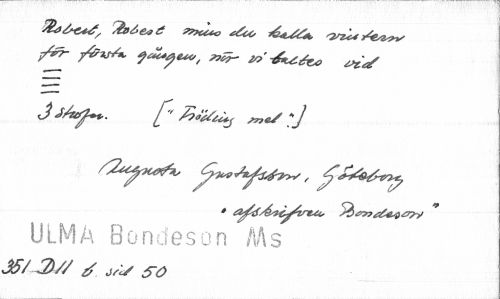 Robert, Robert mins du kalla vintern
för första gången, när vi taltes vid
3 strofer. ["Fröding mel".]
Augusta Gustafsson, Göteborg
"afskrifven Bondeson"
ULMA Bondeson Ms
351 D11 b sid 50